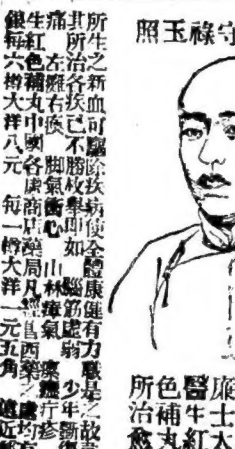 祿玉照
廉士大
醫生紅
色補丸
所治愈
所生之新血可驅除疾病使全體康健有力職是之故
其所治各疾已不勝枚舉即如 腦筋虛弱 少年斷傷
痛 左癱右瘓 脚氣衝心 山林瘴氣
生紅色補丸中國各處商店藥局凡經售西藥之處均有
銀每六樽大洋八元 每一樽大洋一元五角 遠近郵